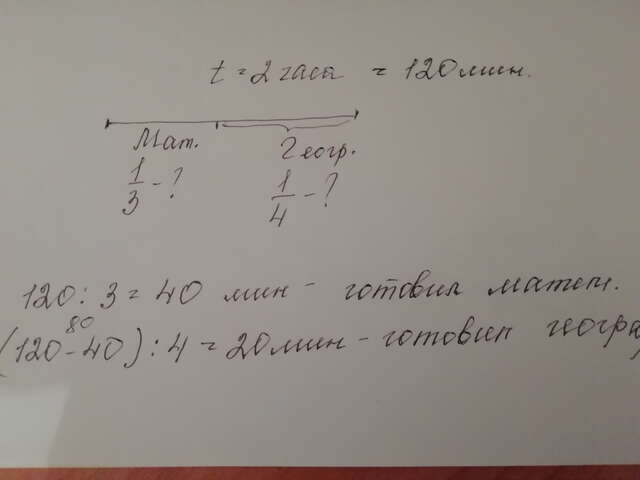 t = 2 часа = 120 мин.
Мат. Геогр.
1/3 - ? 1/4 - ?
120 : 3 = 40 мин - готовил матем.
80
(120 - 40) : 4 = 20 мин - готовил геогра